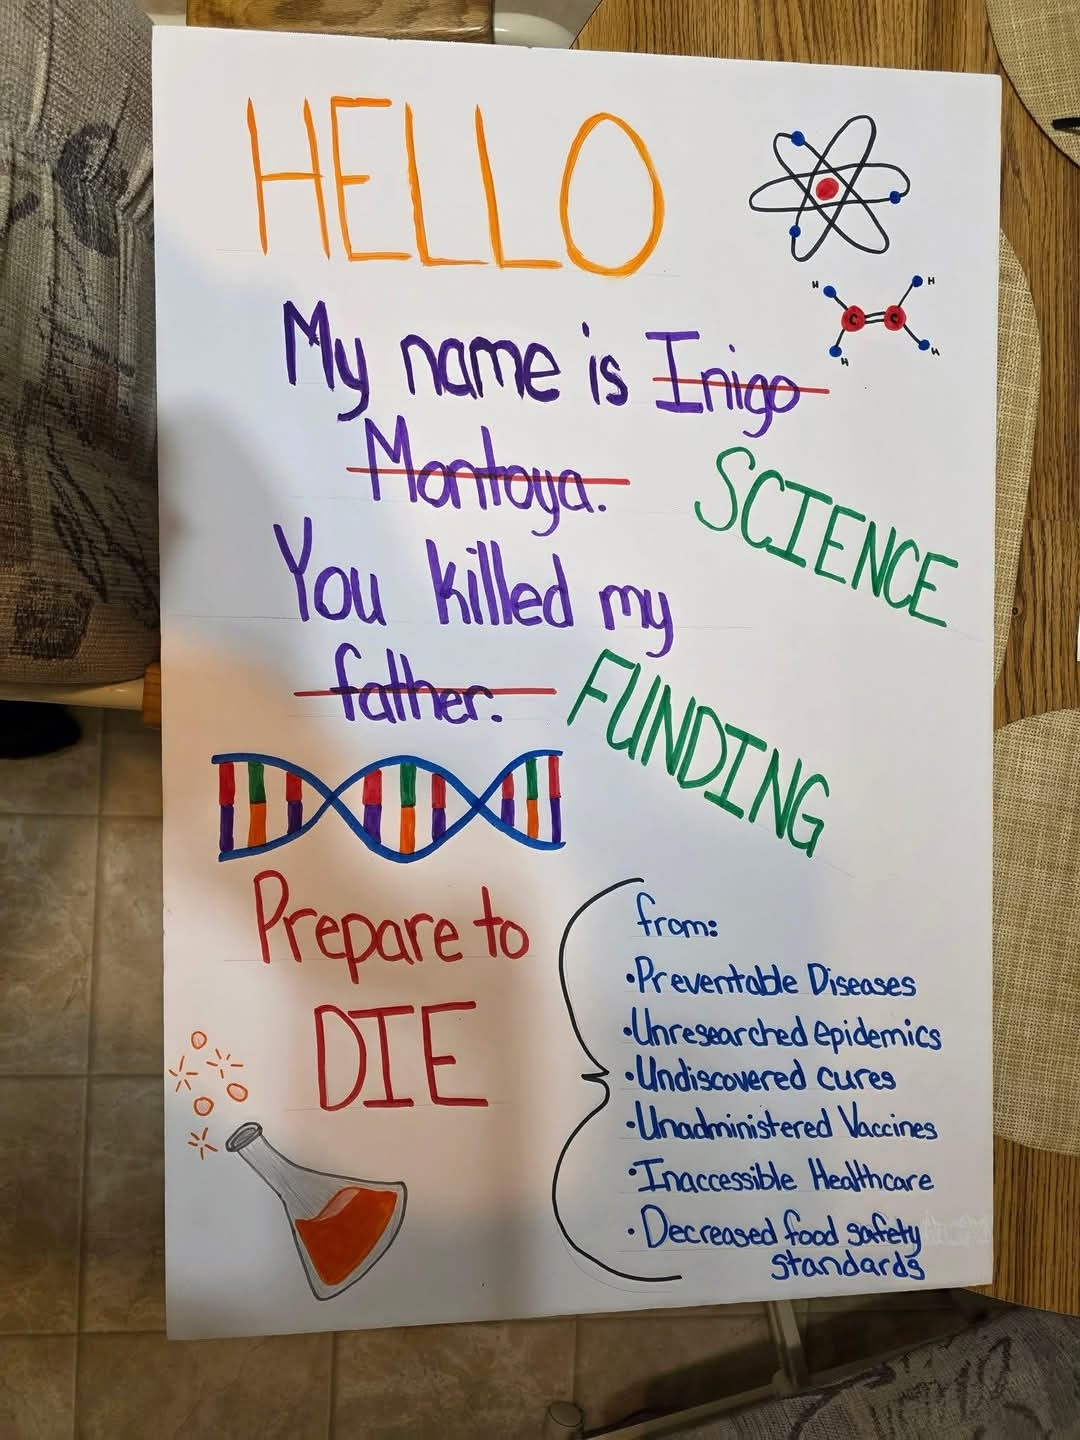 HELLO
H H
C C
H H
My name is Inigo
Montoya.
SCIENCE
You killed my
father.
FUNDING
Prepare to
DIE
from:
•Preventable Diseases
•Unresearched epidemics
•Undiscovered cures
•Unadministered Vaccines
•Inaccessible Healthcare
•Decreased food safety
standards